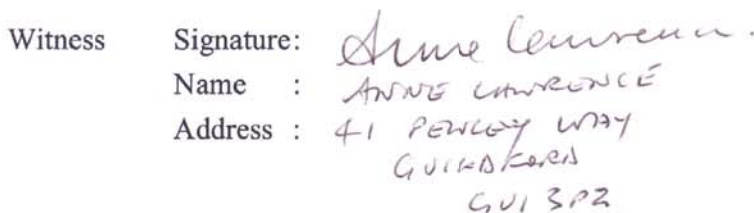 Witness Signature: Anne Lawrence.
Name : ANNE LAWRENCE
Address : 41 PEWLEY WAY
GUILDFORD
GU1 3PZ